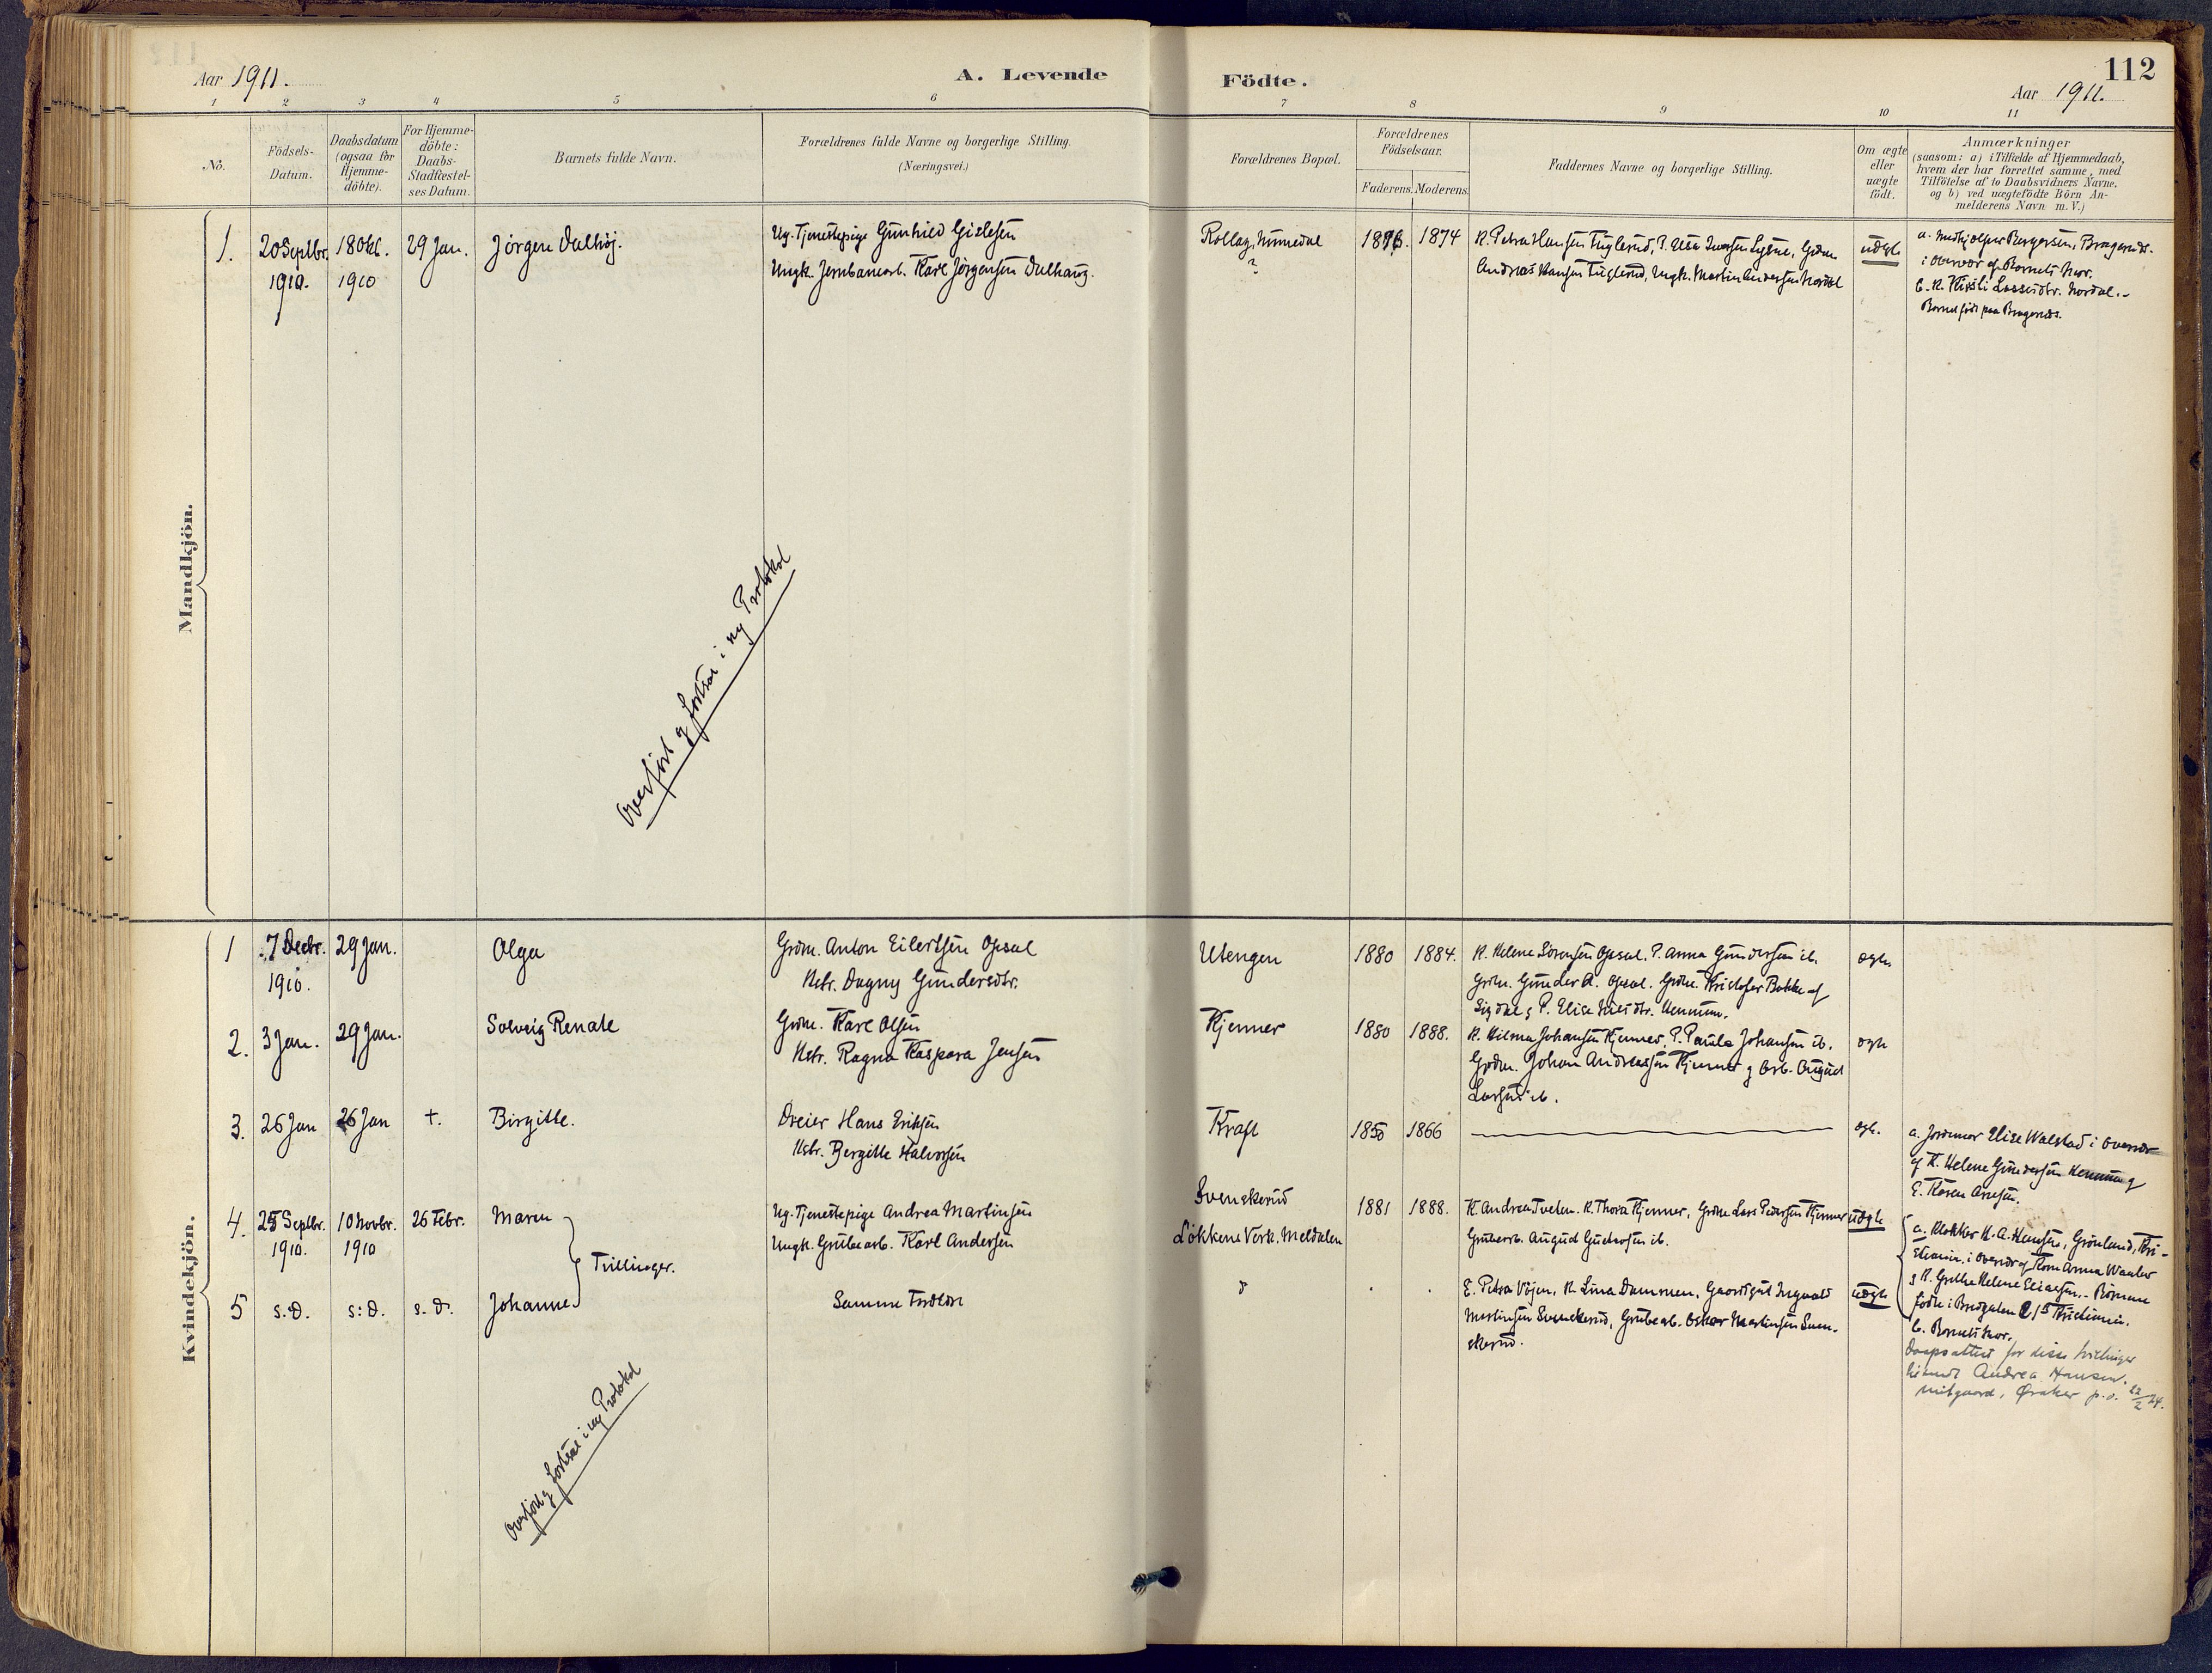 Aar 1911.
A. Levende Födte.
112
Aar 1911.
1 2 3 4 5 6 7 8 9 10 11
No.
Födsels-
Datum.
Daabsdatum
(ogsaa for
Hjemme-
döbte).
For Hjemme-
döbte:
Daabs-
Stadfæstel-
ses Datum.
Barnets fulde Navn.
Forældrenes fulde Navne og borgerlige Stilling.
(Næringsvei.)
Forældrenes Bopæl.
Forældrenes
Födselsaar.
Faderens. Moderens.
Faddernes Navne og borgerlige Stilling.
Om ægte
eller
uægte
födt.
Anmærkninger
(saasom: a) i Tilfælde af Hjemmedaab,
hvem der har forrettet samme, med
Tilföielse af to Daabsvidners Navne,
og b) ved uægtefödte Börn An-
melderens Navn m. V.)
Mandkjön.
1. 20 Septbr. 18 Okt. 29 Jan. Jörgen Dalhöj.
1910. 1910
Ug. Tjenestepige Gunhild Gislesen
Ungk. Jernbanearb. Karl Jörgensen Dalhaug.
Rollag, Numedal
?
1876. 1874
K. Petra Hansen Fuglerud, P. Elsa Iversen Lyhne, Grdm.
Andreas Hansen Fuglerud, Ungk. Martin Andersen Nordal
uægte
a. Medhjelper Bergersen, Bragernes.
i Overvær af Barnets Mor.
b. K. Kisti Larsdtr. Nordal.-
Barnet födt paa Bragernes.
Overfört og fortsat i ny Protokol
Kvindekjön.
1 7 Decbr. 29 Jan. Olga
1910.
Grdm. Anton Eilertsen Opsal
Hstr. Dagny Gundersdtr.
Utengen 1880 1884.
K. Helene Sörensen Opsal. P. Anna Gundersen ib.
Grdm. Gunder A. Opsal. Grdm. Kristofer Bakke af
Sigdal, P. Elise Nilsdtr. Hennum.
ægte
2. 3 Jan. 29 Jan. Solveig Renate
Grdm. Karl Olsen
Hstr. Ragna Kaspara Jensen
Kjenner 1880 1888.
K. Hilma Johansen Kjenner, P. Paula Johansen ib.
Grdm. Johan Andreassen Kjenner og Arb. August
Larsen ib.
ægte
3. 26 Jan 26 Jan +. Birgitte.
Dreier Hans Eriksen
Hstr. Bergitte Halvorsen
Kraft 1850 1866
ægte.
a. Jordmor Elise Walstad i Overvær
af K. Helene Gundersen Hennum og
E. Karen Arnesen.
4. 25 Septbr. 10 Novbr. 26 Febr. Maren
1910. 1910
Tvillinger.
Ug. Tjenestepige Andrea Martinsen
Ungk. Grubearb. Karl Andersen
Svenskerud
Lökkens Verk. Meldalen
1881 1888.
K. Andrea Tveten. K. Thora Kjenner, Grdm. Lars Pedersen Kjenner
Grubearb. August Gustavsen ib.
uægte
a. Klokker H. A. Hansen, Grönland, Kri-
stiania, i Overvær af Kone Anna Waaler
og K. Grethe Helene Eliassen. - Börnene
födte i Bredgaten 215 Kristiania.
b. Barnets Mor.
Daapsattest for disse tvillinger
tilsendt Andrea Hansen.
Mitgaard, Øraker p.å. 22/2 24.
5 s.d. s:d. s.d. Johanne
Samme Forældre
E. Petra Vöjen, K. Lina Dammen, Gaardgut Ingvald
Martinsen Svenskerud, Grubearb. Oskar Martinsen Sven-
skerud.
uægte
Overfört og fortsat i ny Protokol